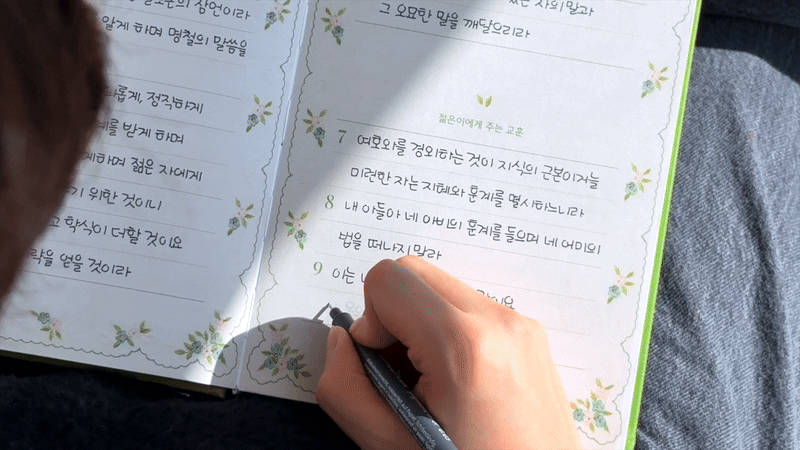 잠언이라
알게 하며 명철의 말씀을
정직하게
받게 하며
젊은 자에게
위한 것이니
학식이 더할 것이요
얻을 것이라
자의 말과
그 오묘한 말을 깨달으리라
젊은이에게 주는 교훈
7 여호와를 경외하는 것이 지식의 근본이거늘
미련한 자는 지혜와 훈계를 멸시하느니라
8 내 아들아 네 아비의 훈계를 들으며 네 어미의
법을 떠나지 말라
9 이는